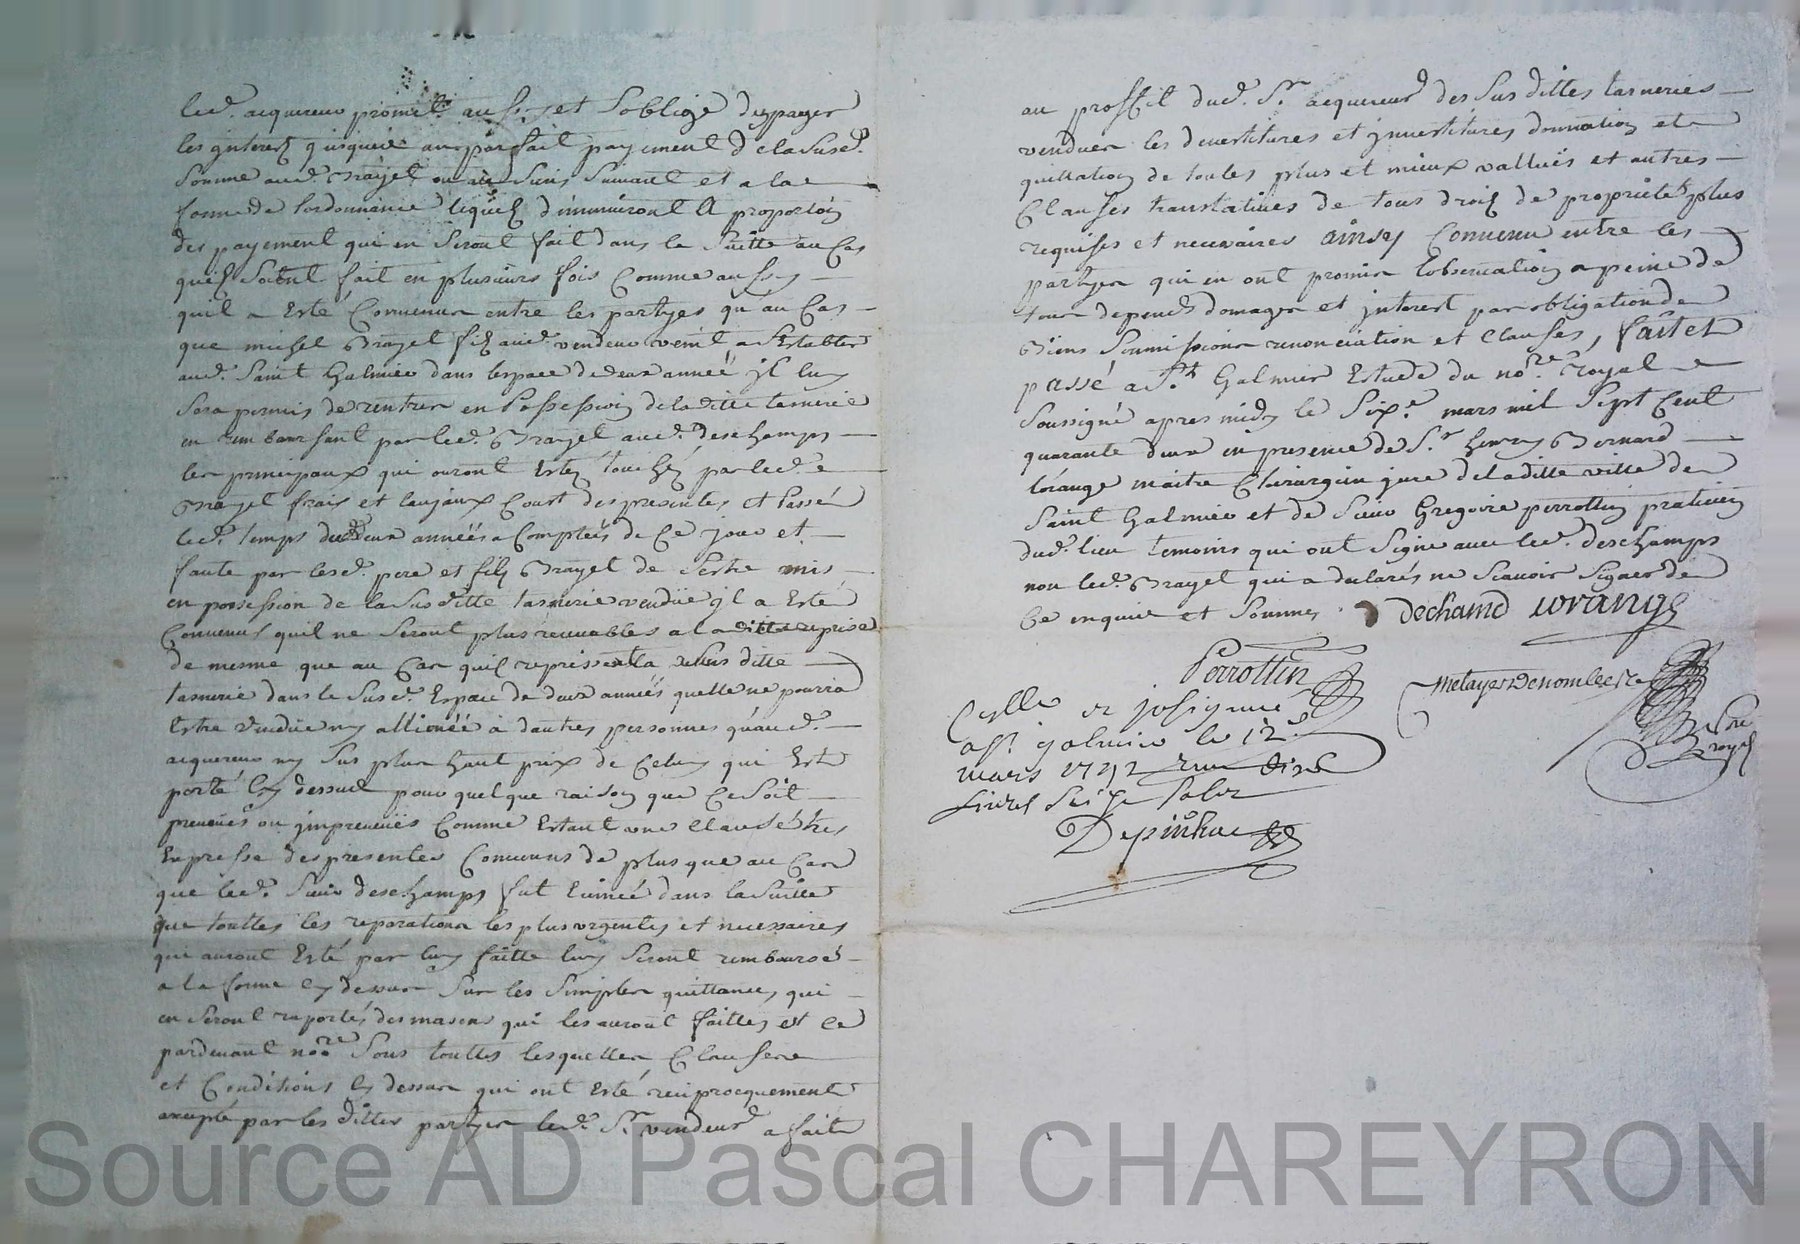 led. acquereur promet aussy et soblige dy payer
les interest jusques au parfait payement de la susd.
somme aud. Brayet ou aux siens suivant et a la
forme de lordonnance lequels diminuront A proportion
des payement qui en seront fait dans la suitte au cas
quils soient fait en plusieurs fois comme aussy
quil a Esté Convenu entre les partyes qu'au Cas
que michel Brayet fils aud. vendeur vint a sEstablir
aud. Saint Galmier dans lespace de deux année jl luy
sera permis de rentrer en possession de laditte tannerie
en remboursant par led. Brayet aud. deschamps
les principaux qui auront Estés touchés par led.
Brayet frais et loyaux Coust des presentes et passé
led. temps de deux années a Comptés de Ce jour et
faute par lesd. pere et fils Brayet de sestre mis
en possession de la susditte tannerie vendüe jl a Esté
Convenus quil ne seront plus recevables a laditte reprise
de mesme que au Cas quil reprissent la susditte
tannerie dans le susd. Espace de deux années quelle ne pourra
Estre vendüe ny allienéé à dautres personnes qu'aud.
acquereur ny sus plus haut prix de Celuy qui Est
porté Cy dessus pour quelque raison que Ce soit
preveuës ou jmpreveuës Comme Estant une Clause très
Expresse des presentes Convenus de plus que au Cas
que led. sieur deschamps fut Evincé dans la suitte
que touttes les reparations les plus urgentes et necessaires
qui auront Esté par luy faitte luy seront rembourcé
a la forme Cy dessus sur les simples quittances qui
en seront raportés des masons qui les auront faittes et ce
pardevant nore. sous touttes lesquelles Clauses
et Conditions Cy dessus qui ont Esté reciprocquement
accepté par les dittes partyes led. Sr. vendeur a fait
au proffit dud. Sr. acquereur des susdittes tanneries
vendues les devestitures et jnvestitures donnation et
quittation de toutes plus et mieux vallues et autres
Clauses translatives de tous droits de proprietés plus
requises et necessaires ainsy Convenu entre les
partyes qui en ont promis lobservation a peine de
tous depends domages et jnterest par obligation de
Biens soumissions renonciation et Clauses, fait et
passé a St. Galmier Estude du nore. royal
soussigné apres midy le sixe. mars mil sept Cent
quarante deux en presence de Sr. henry Bernard
lorange maitre Chirurgien juré de laditte ville de
saint Galmier et de sieur Gregoire perrottin praticien
dud. lieu temoins qui ont signe avec led. deschamps
non led. Brayet qui a declarés ne scavoir signer de
Ce enquis et sommé dechamd lorange
Perrottin
Metayer Denomber
nore
royal
Collé et insinué
a St. galmier le 12e.
mars 1742
livres seize sols
Depinhac
Source AD Pascal CHAREYRON